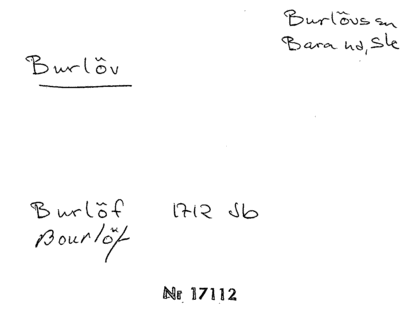 Burlöv
Burlövs sn
Bara hd, Skе
Burlöf 1712 Jb
Bourlöf
Nr 17112